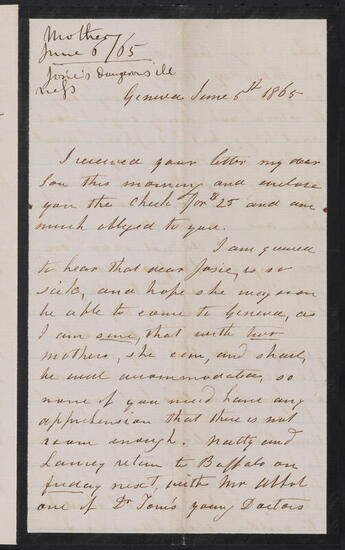 Mother
June 6/65
Josie's Dangerous ill
ness
Geneva June 6th 1865
I received your letter my dear
Son this morning and enclose
you the check for $25 and am
much obliged to you.
I am grieved
to hear that dear Josie, is so
sick, and hope she may soon
be able to come to Geneva, as
I am sure, that with two
mothers, she can, and shall,
be well accommodated, so
none of you need have any
apprehension that there is not
room enough. Natty and
Laurey return to Buffalo on
friday next, with Mr Abbot
one of Dr Tom's young Doctors